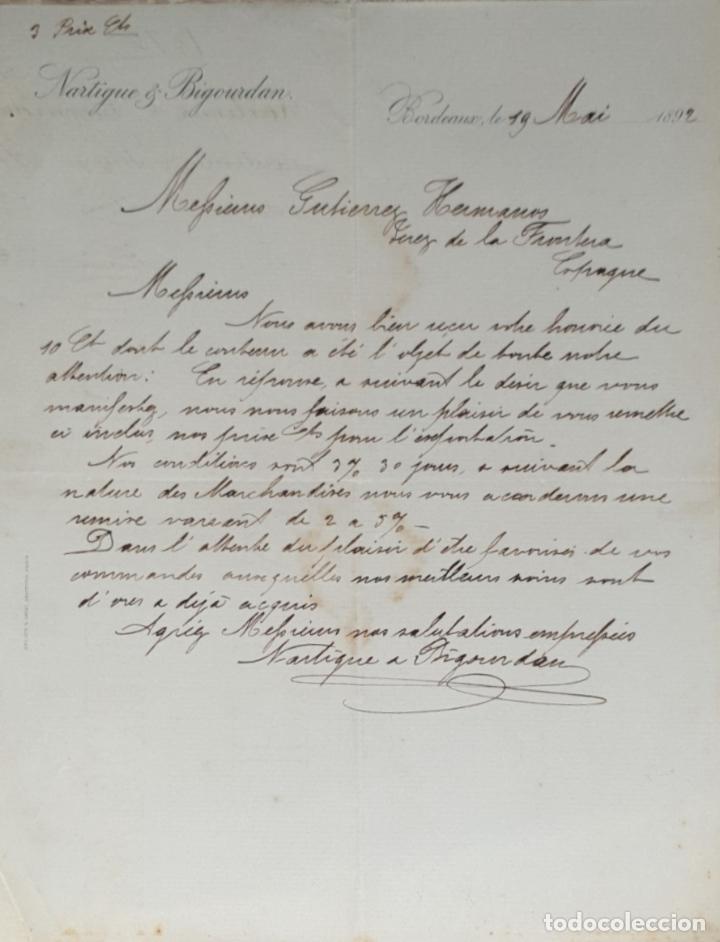 3 Prix Cts
Nartigue & Bigourdan.
Bordeaux, le 19 Mai 1892
Messieurs Gutierrez Hermanos
Jerez de la Frontera
Espagne
Messieurs
Nous avons bien reçu votre honorée du
10 Ct dont le contenu a été l'objet de toute notre
attention : En réponse, & suivant le désir que vous
manifestez, nous nous faisons un plaisir de vous remettre
ci inclus, nos prix Cts pour l'exportation.
Nos conditions sont 3% 30 jours, & suivant la
nature des Marchandises nous vous accorderons une
remise variant de 2 a 5% -
Dans l'attente du plaisir d'être favorisés de vos
commandes auxquelles nos meilleurs soins sont
d'ores & déjà acquis
Agréez Messieurs nos salutations empressées
Nartigue & Bigourdan
todocoleccion